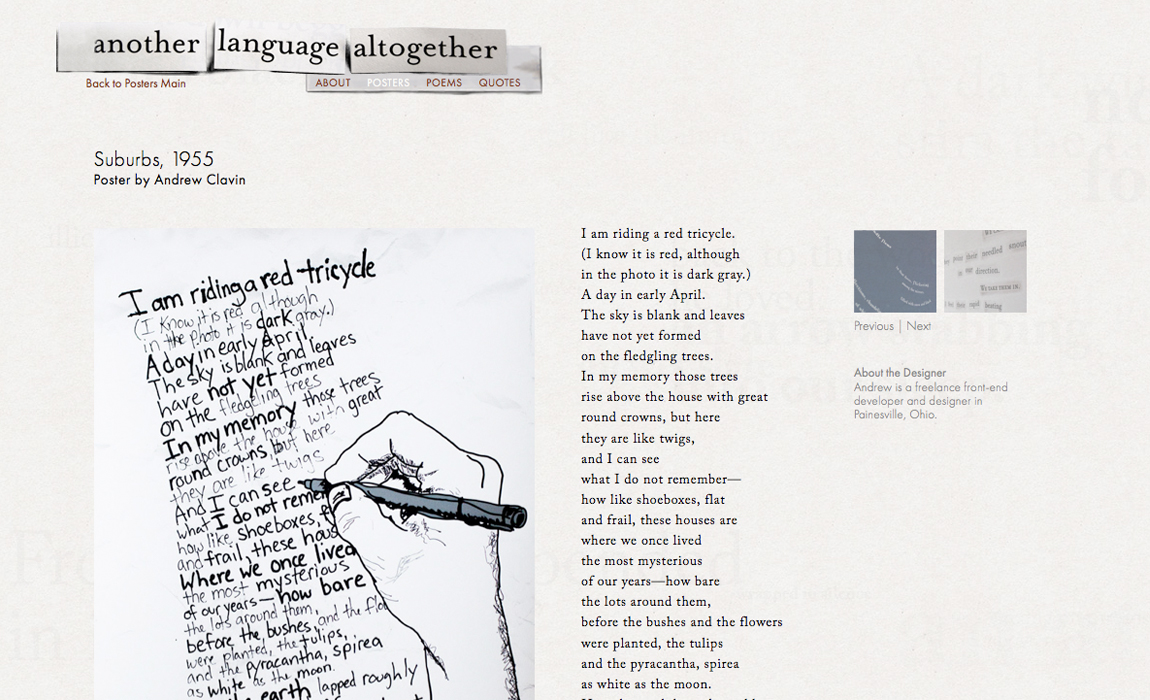 another language altogether
Back to Posters Main
ABOUT POSTERS POEMS QUOTES
Suburbs, 1955
Poster by Andrew Clavin
I am riding a red tricycle
(I know it is red although
in the photo it is dark gray.)
A day in early April.
The sky is blank and leaves
have not yet formed
on the fledgling trees
In my memory those trees
rise above the house with great
round crowns, but here
they are like twigs
And I can see
what I do not remem
how like shoeboxes, f
and frail, these hous
Where we once lived
the most mysterious
of our years—how bare
the lots around them,
before the bushes and the flo
were planted, the tulips,
and the pyracantha, spirea
as white as the moon.
earth lapped roughly
I am riding a red tricycle.
(I know it is red, although
in the photo it is dark gray.)
A day in early April.
The sky is blank and leaves
have not yet formed
on the fledgling trees.
In my memory those trees
rise above the house with great
round crowns, but here
they are like twigs,
and I can see
what I do not remember—
how like shoeboxes, flat
and frail, these houses are
where we once lived
the most mysterious
of our years—how bare
the lots around them,
before the bushes and the flowers
were planted, the tulips
and the pyracantha, spirea
as white as the moon.
Previous | Next
About the Designer
Andrew is a freelance front-end
developer and designer in
Painesville, Ohio.